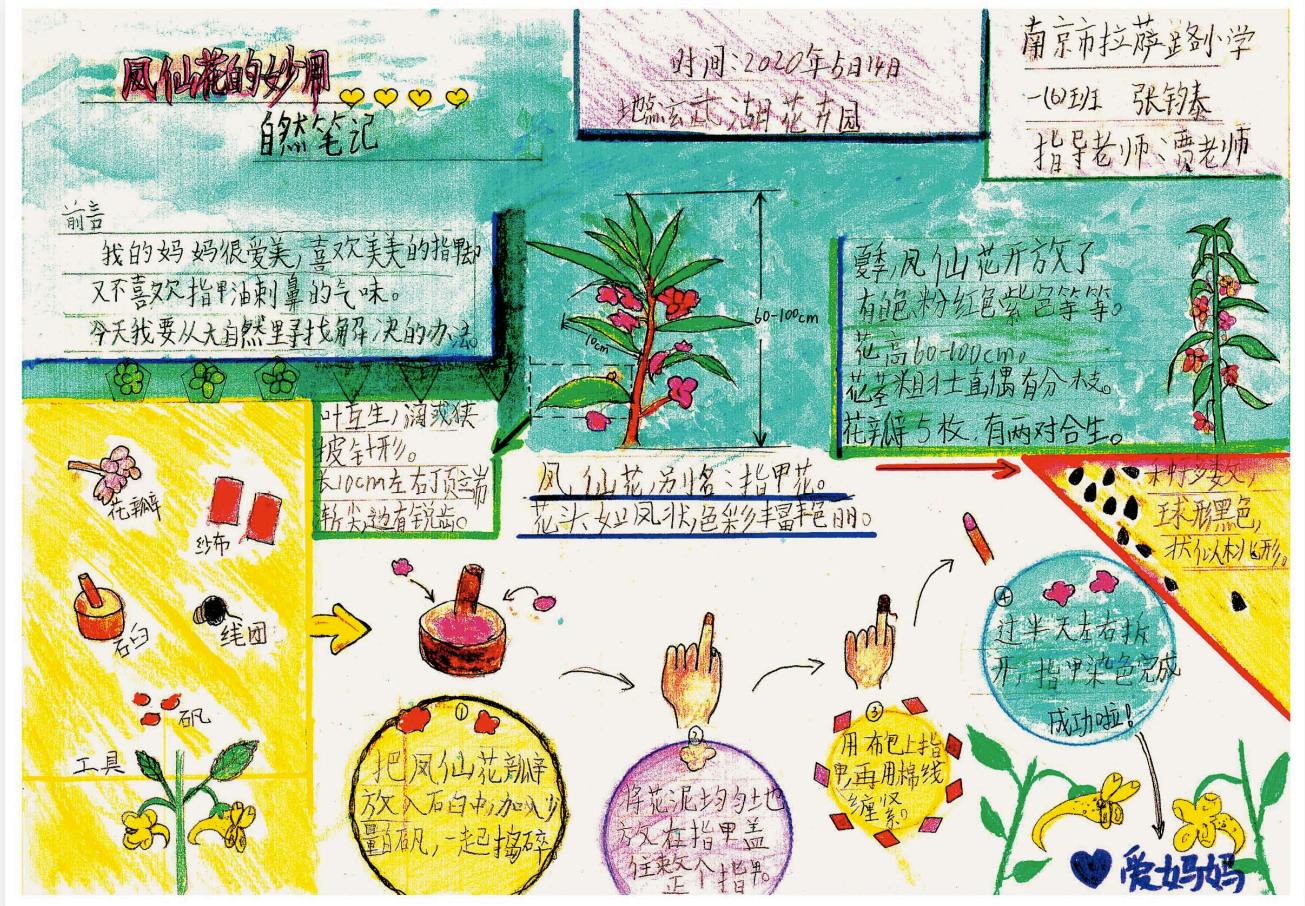 凤仙花的妙用
自然笔记
时间:2020年5月14日
地点:玄武湖花卉园
南京市拉萨路小学
一(6)班 张钧泰
指导老师:贾老师
前言
我的妈妈很爱美,喜欢美美的指甲
又不喜欢指甲油刺鼻的气味。
今天我要从大自然里寻找解决的办法。
60-100cm
10cm
夏季,凤仙花开放了
有白色粉红色紫色等等。
花高60-100cm。
花茎粗壮直偶有分枝。
花瓣5枚,有两对合生。
叶互生,
披针形。
长10cm左右顶端
渐尖边有锐齿。
凤仙花,别名:指甲花。
花头如凤状,色彩丰富艳丽。
种籽多数,
球形黑色,
状似桃形。
花瓣
纱布
石臼
线团
矾
工具
①
把凤仙花瓣
放入石臼中,加入少
量白矾,一起捣碎
②
将花泥均匀地
放在指甲盖
指甲。
③
用布包上指
甲,再用棉线
缠紧。
④
过半天左右拆
开,指甲染色完成
成功啦!
爱妈妈